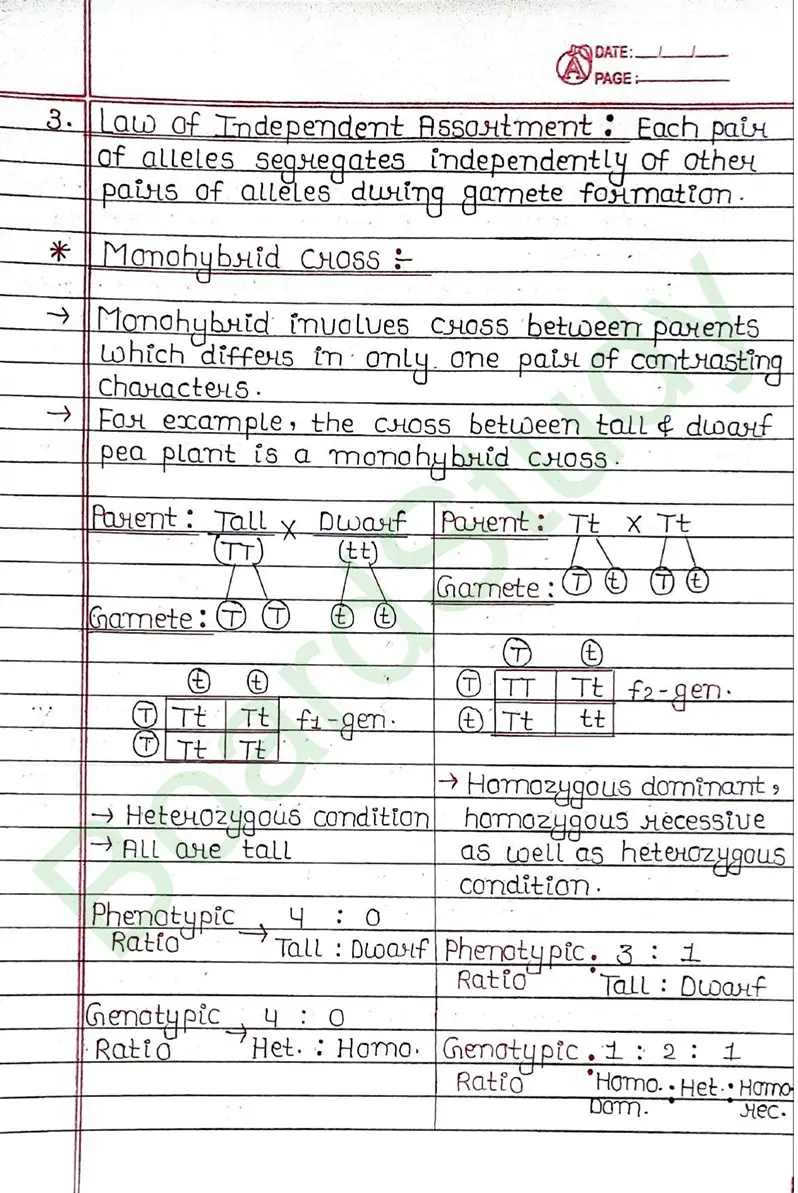 DATE: __/__/__
PAGE: ______
3. Law of Independent Assortment : Each pair
of alleles segregates independently of other
pairs of alleles during gamete formation.
* Monohybrid cross :-
→ Monohybrid involves cross between parents
which differs in only one pair of contrasting
characters.
→ For example, the cross between tall & dwarf
pea plant is a monohybrid cross.
Parent : Tall x Dwarf
(TT) (tt)
Gamete : T T t t
t t
T Tt Tt f1-gen.
T Tt Tt
→ Heterozygous condition
→ All are tall
Phenotypic 4 : 0
Ratio → Tall : Dwarf
Genotypic 4 : 0
Ratio → Het. : Homo.
Parent : Tt x Tt
Gamete : T t T t
T t
T TT Tt f2-gen.
t Tt tt
→ Homozygous dominant,
homozygous recessive
as well as heterozygous
condition.
Phenotypic : 3 : 1
Ratio Tall : Dwarf
Genotypic : 1 : 2 : 1
Ratio Homo. : Het. : Homo.
Dom. rec.
BoardStudy